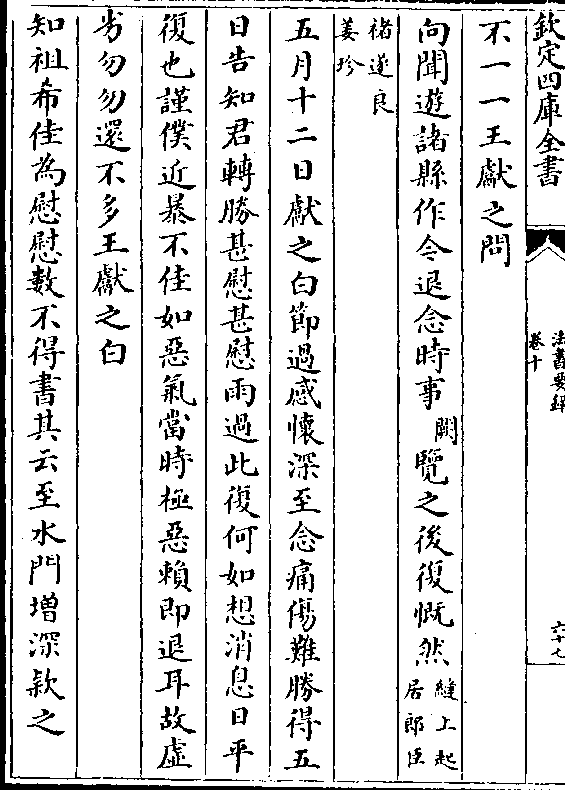 欽定四庫全書
法書要録
卷十
六十七
不一一王獻之問
向聞遊諸縣作令退念時事闕覽之後復慨然縫上起居郎臣
褚遂良
姜珍
五月十二日獻之白節過感懷深至念痛傷難勝得五
日告知君轉勝甚慰甚慰雨過此復何如想消息日平
復也謹僕近暴不佳如惡氣當時極惡賴即退耳故虛
劣勿勿還不多王獻之白
知祖希佳為慰慰數不得書其云至水門増深欵之